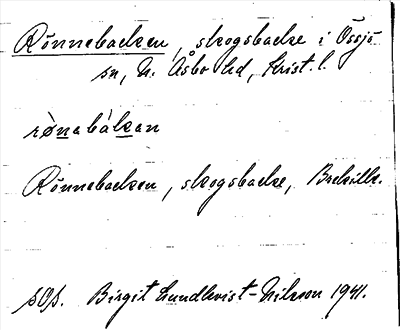 Rönnebacken, skogsbacke i Össjö
sn, N. Åsbo hd, Krist. l.
rø̀nabàkan
Rönnebacken, skogsbacke,
Birgit Lundkvist-Nilsson 1941.